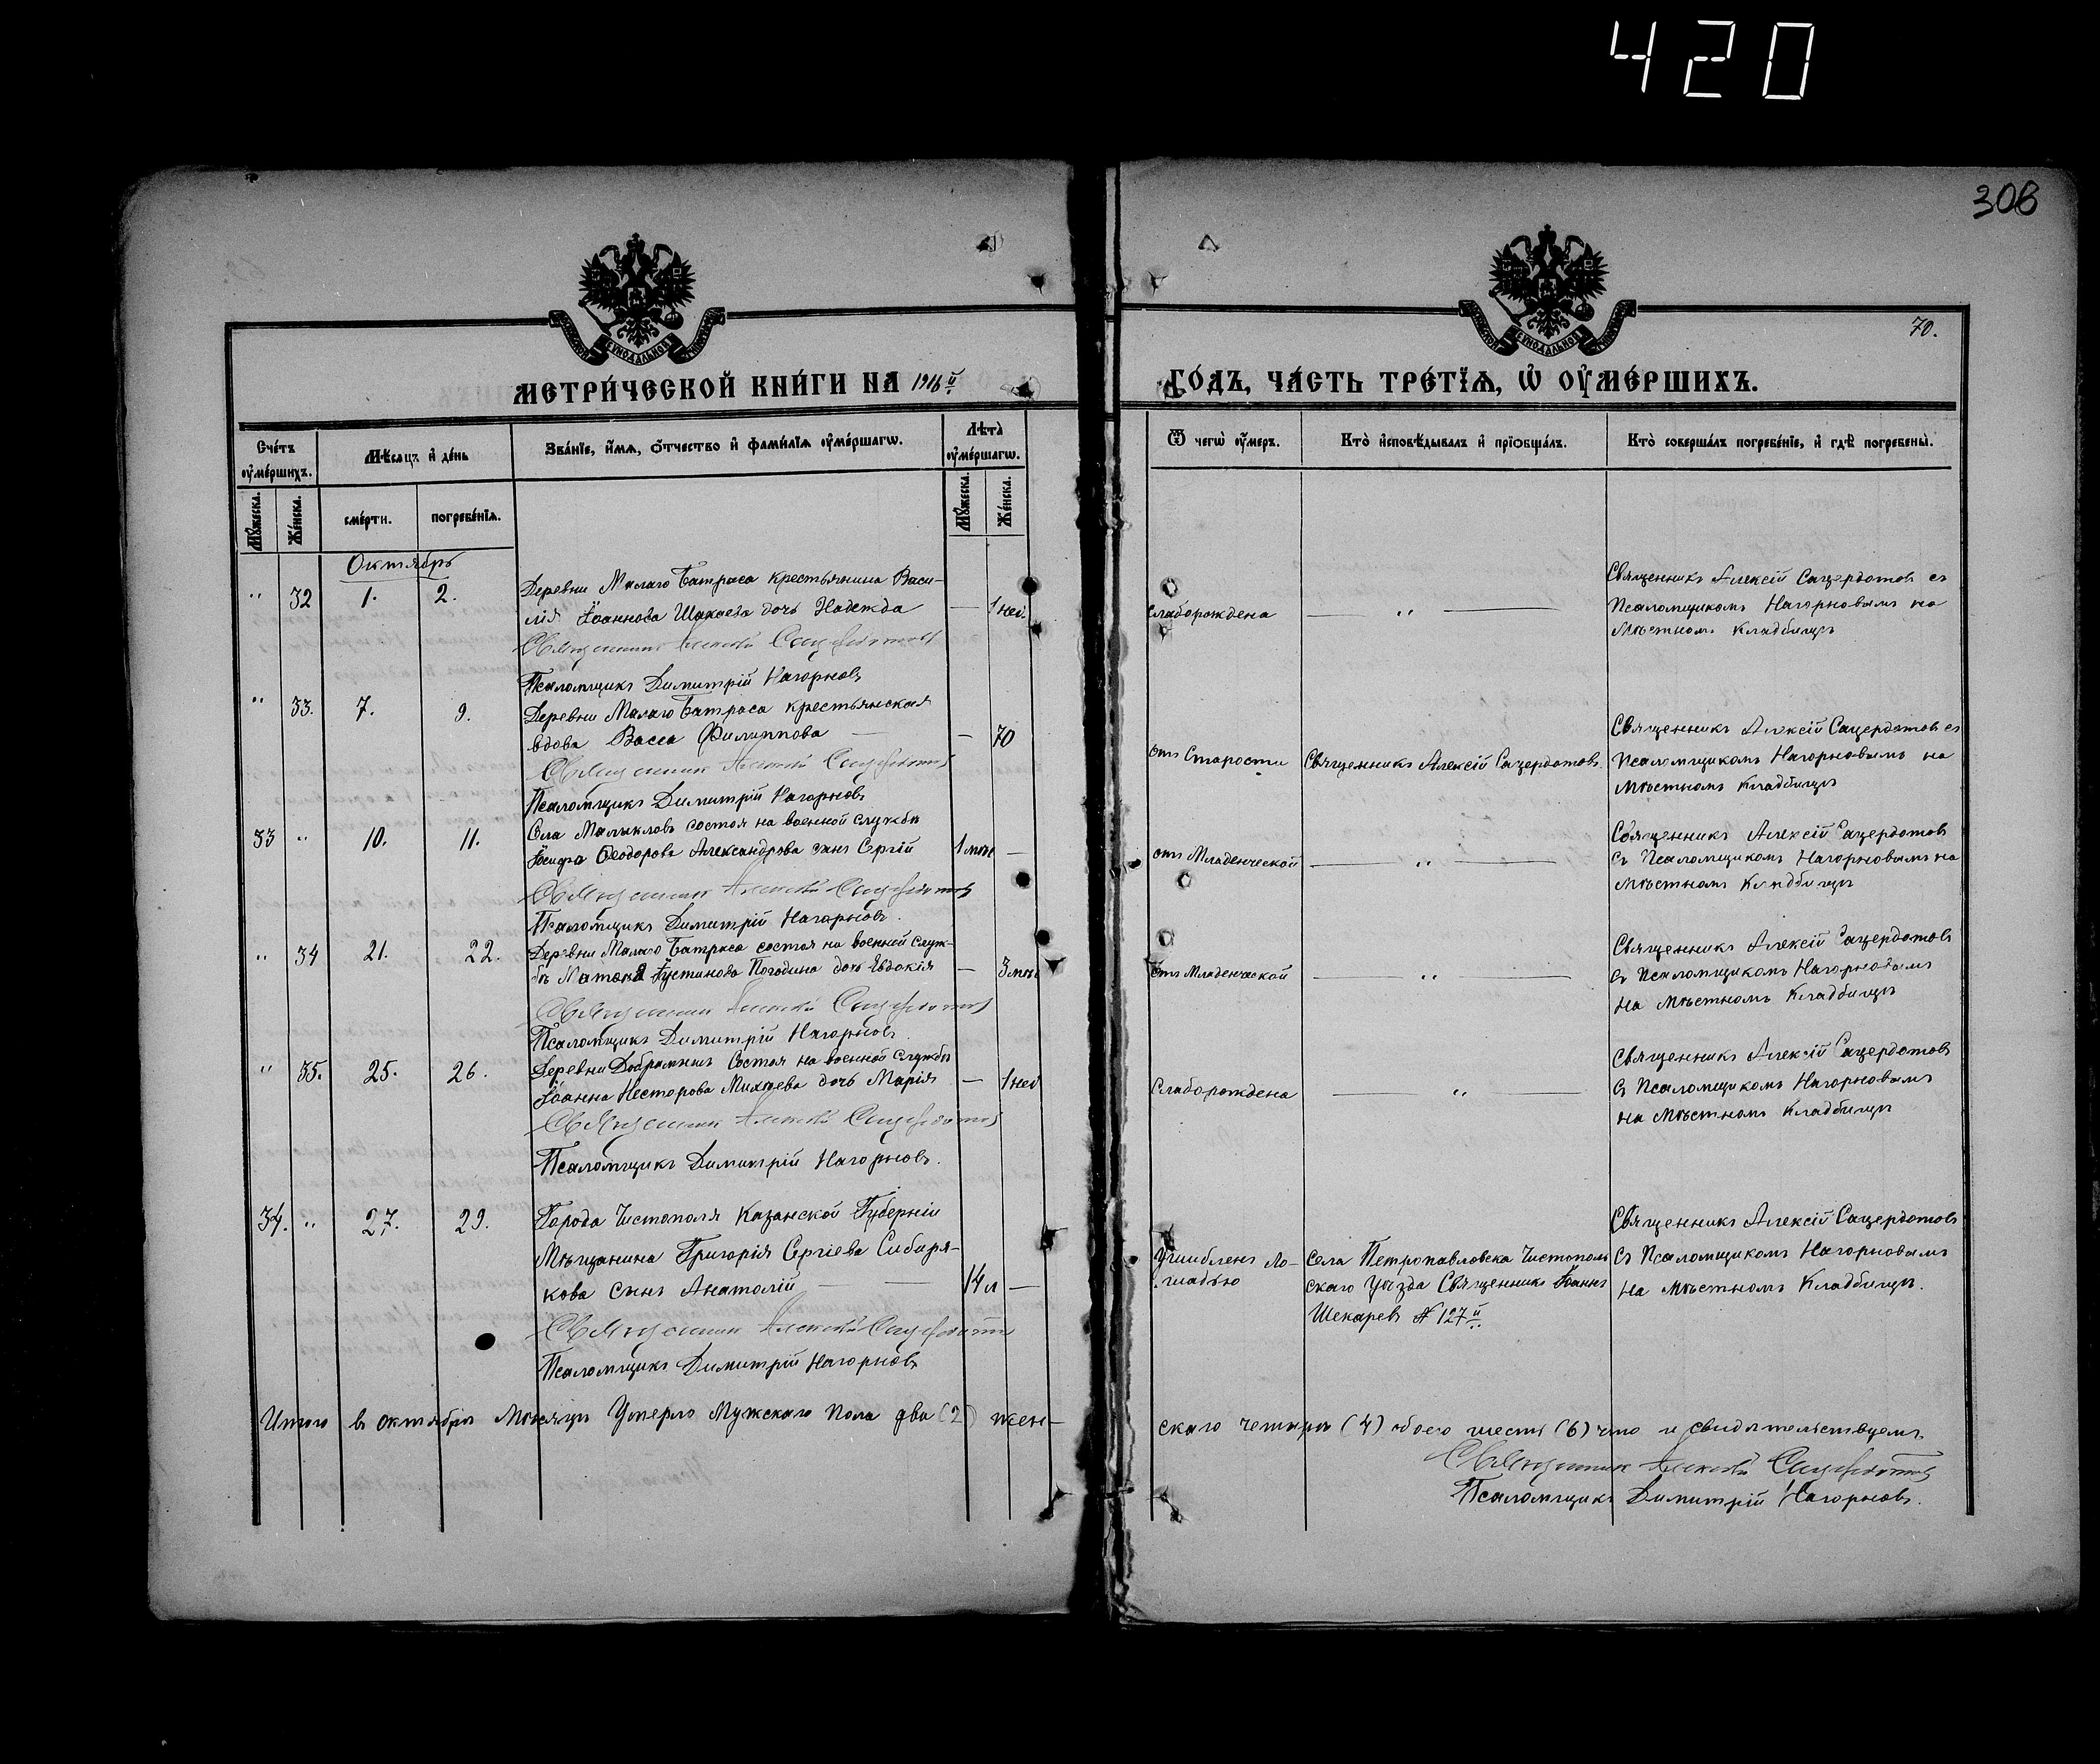 420
308
70.
МЕТРИ́ЧЕСКОЙ КНИ́ГИ НА 1916й ГО́ДЪ, ЧА́СТЬ ТРЕ́ТЇѦ, Ѡ҆ ОУ҆МЕ́РШИХЪ.
Сче́тъ оу҆ме́ршихъ.
Мѣ́сѧцъ и҆ де́нь
Зва́нїе, и҆́мѧ, ѻ҆́тчество и҆ фами́лїѧ оу҆ме́ршагѡ.
Лѣ́та оу҆ме́ршагѡ.
Ѿ чегѡ̀ оу҆́меръ.
Кто̀ и҆сповѣ́дывалъ и҆ прїѡбща́лъ.
Кто̀ соверша́лъ погребе́нїе, и҆ гдѣ̀ погребены̀.
Мꙋ́жеска.
Же́нска.
сме́рти.
погребе́нїѧ.
Мꙋ́жеска.
Же́нска.
Октябрь
" 32 1. 2.
Деревни Малаго Батраса крестьянина Васи-
лія Іоаннова Шакаева дочь Надежда — 1 нед.
Священникъ Алексій Сацердотовъ
Псаломщикъ Димитрій Нагорновъ
Слаборождена — " —
Священникъ Алексій Сацердотовъ съ
Псаломщикомъ Нагорновымъ на
Мѣстномъ Кладбищѣ
" 33. 7. 9.
Деревни Малаго Батраса крестьянская
вдова Васса Филиппова — — 70
Священникъ Алексій Сацердотовъ
Псаломщикъ Димитрій Нагорновъ
отъ Старости
Священникъ Алексій Сацердотовъ
Священникъ Алексій Сацердотовъ съ
Псаломщикомъ Нагорновымъ на
Мѣстномъ Кладбищѣ
33 " 10. 11.
Села состоя на военной службѣ
Іосифа Ѳеодорова Александрова сынъ Сергій 1 мѣс —
Священникъ Алексій Сацердотовъ
Псаломщикъ Димитрій Нагорновъ.
отъ Младенческой — " —
Священникъ Алексій Сацердотовъ
съ Псаломщикомъ Нагорновымъ на
Мѣстномъ Кладбищѣ
" 34 21. 22.
Деревни Малаго Батраса состоя на военной служ-
бѣ Іустинова Погодина дочь Евдокія — 3 мѣс
Священникъ Алексій Сацердотовъ
Псаломщикъ Димитрій Нагорновъ.
отъ Младенческой — " —
Священникъ Алексій Сацердотовъ
съ Псаломщикомъ Нагорновымъ
на Мѣстномъ Кладбищѣ
" 35. 25. 26.
Деревни Состоя на военной службѣ
Іоанна Несторова Михѣева дочь Марія — 1 нед
Священникъ Алексій Сацердотовъ
Псаломщикъ Димитрій Нагорновъ.
Слаборождена — " —
Священникъ Алексій Сацердотовъ
съ Псаломщикомъ Нагорновымъ
на Мѣстномъ Кладбищѣ
34. " 27. 29.
Города Чистополя Казанской Губерніи
Мѣщанина Григорія Сергіева Сибиря-
кова сынъ Анатолій — — 14 л —
Священникъ Алексій Сацердотовъ
Псаломщикъ Димитрій Нагорновъ
Ушибленъ ло-
шадью
Села Петропавловска Чистополь
скаго Уѣзда Священникъ Іоаннъ
Шекаревъ № 127й
Священникъ Алексій Сацердотовъ
съ Псаломщикомъ Нагорновымъ
на Мѣстномъ Кладбищѣ.
Итого въ октябрѣ Мѣсяцѣ Умерло Мужскаго Пола два (2) жен-
скаго четыре (4) обоего шесть (6) что и свидѣтельствуемъ
Священникъ Алексій Сацердотовъ
Псаломщикъ Димитрій Нагорновъ.